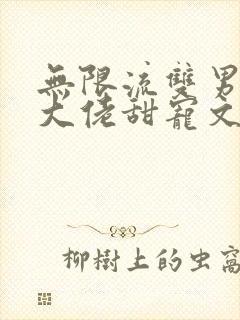 無限流雙男
大佬甜寵文
柳樹上的虫窩